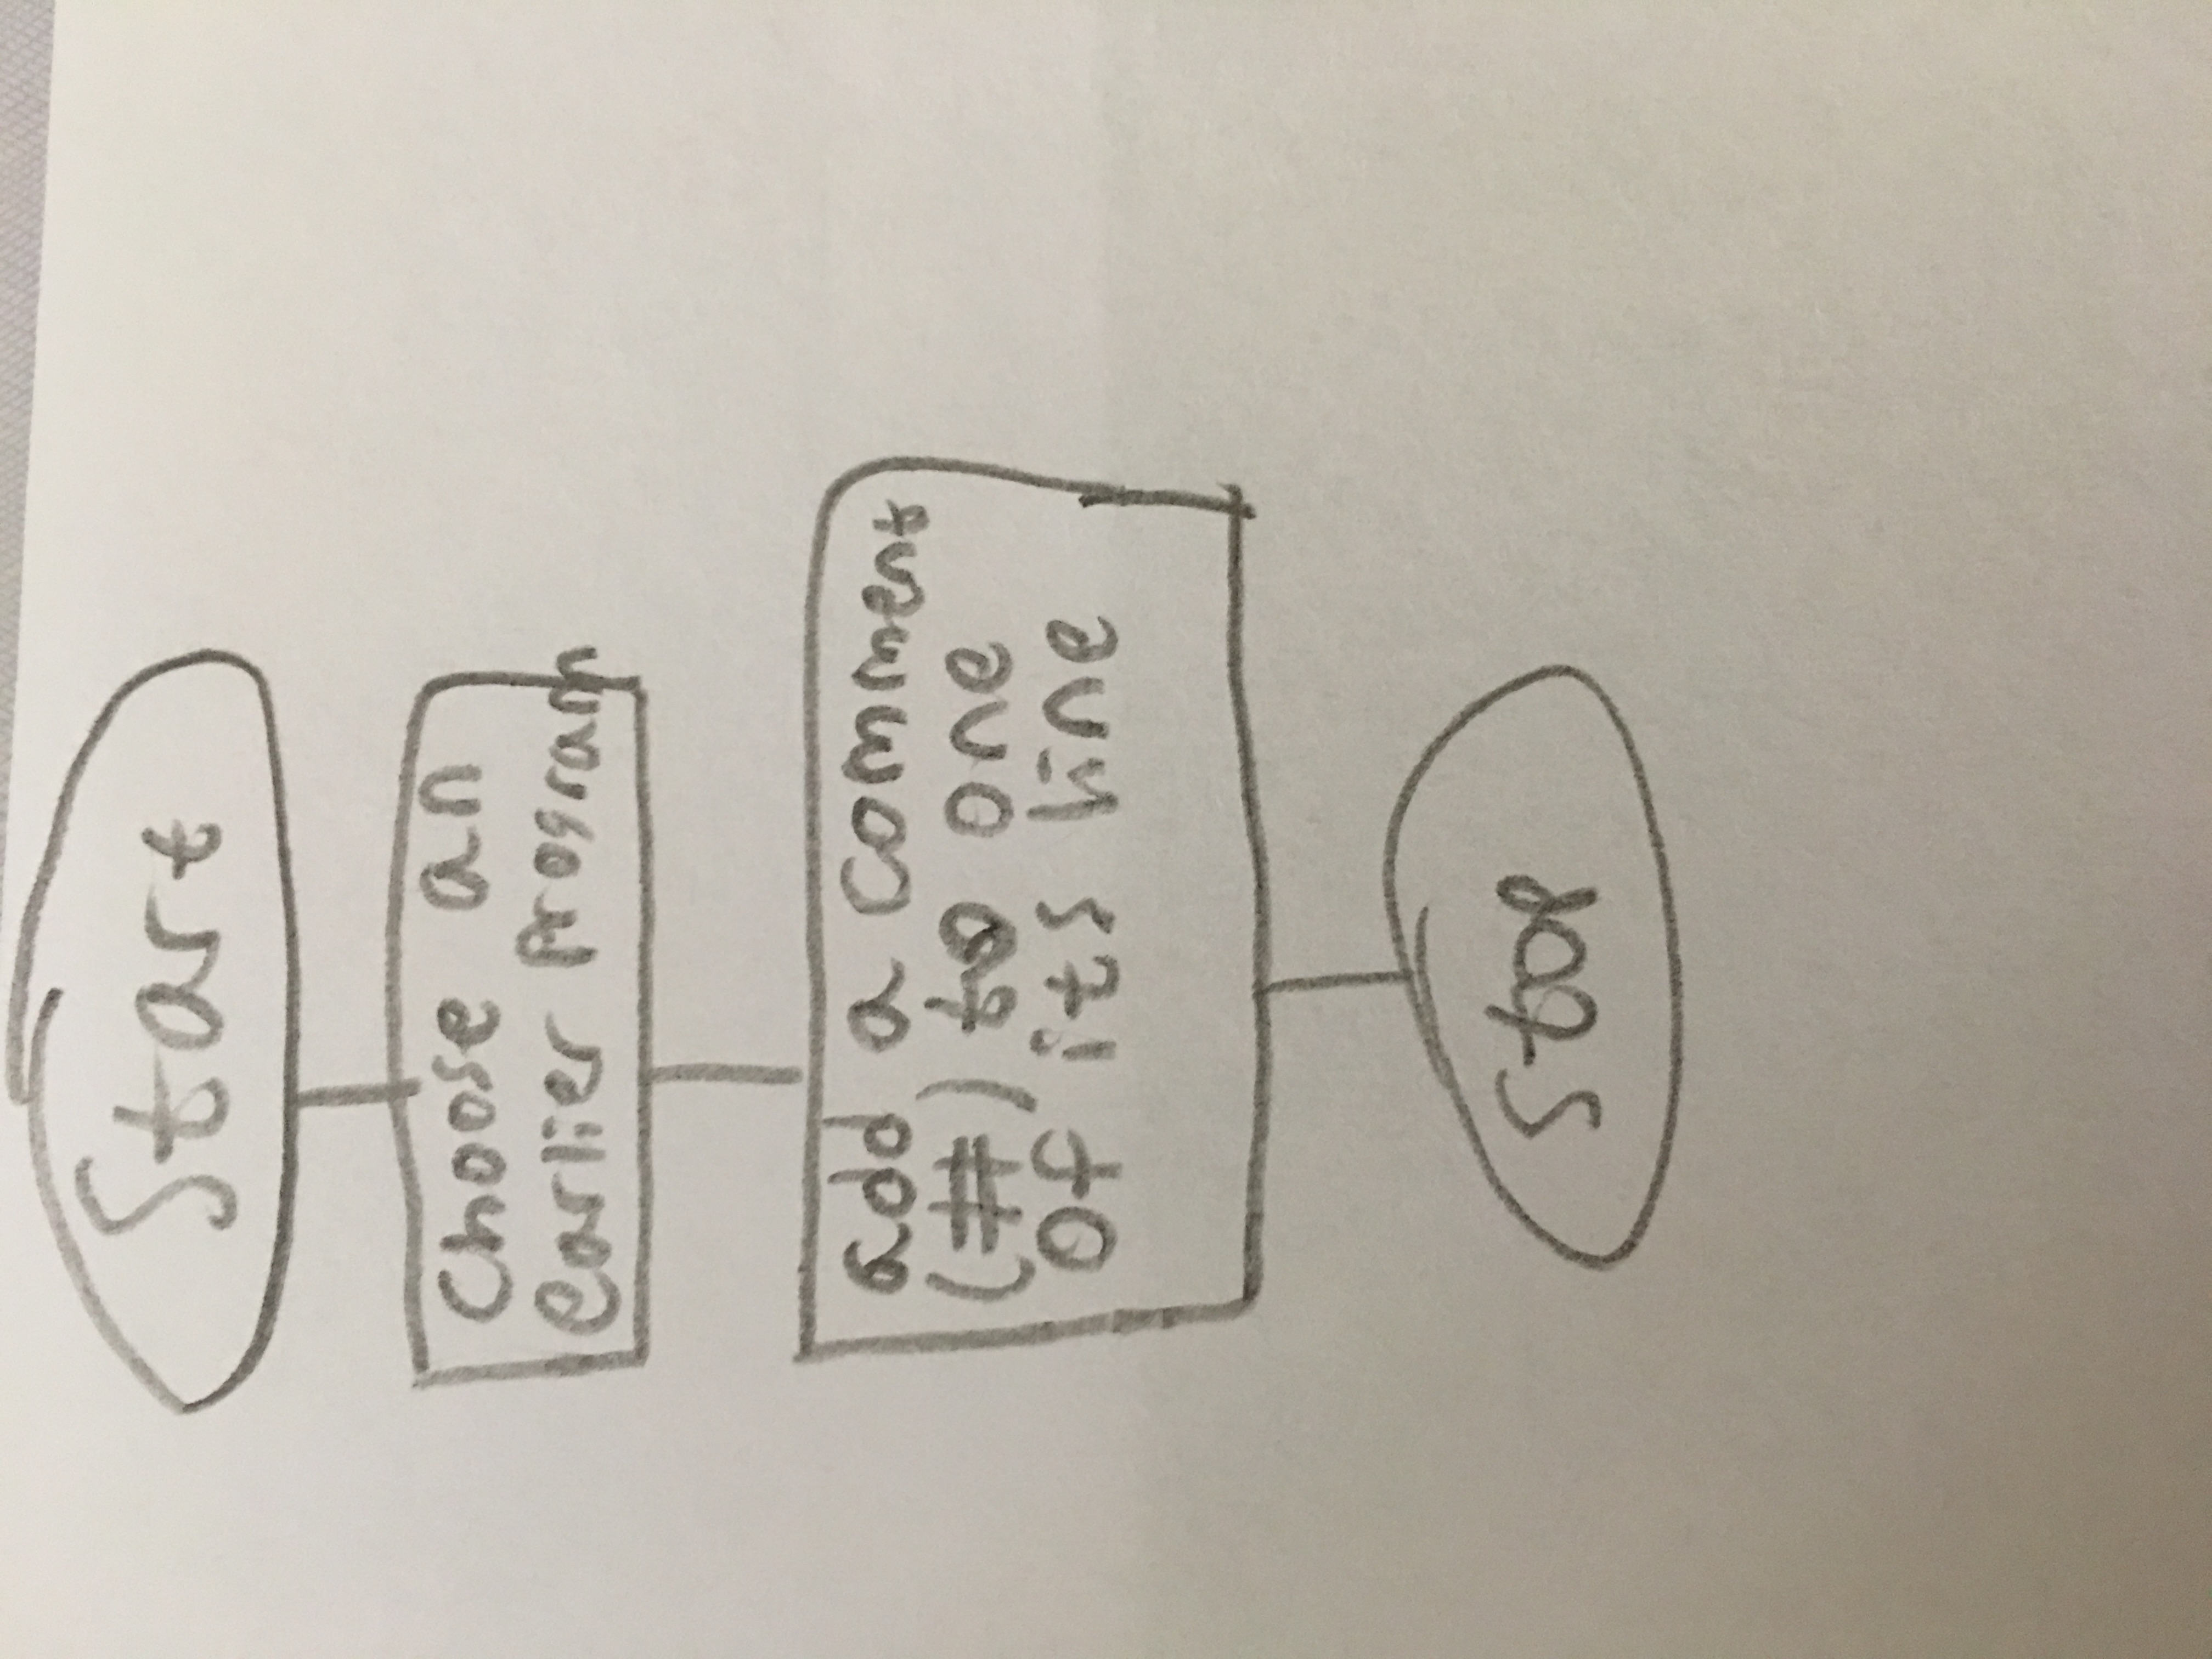 Start
Choose an
earlier Program
add a comment
(#) to one
of its line
Stop